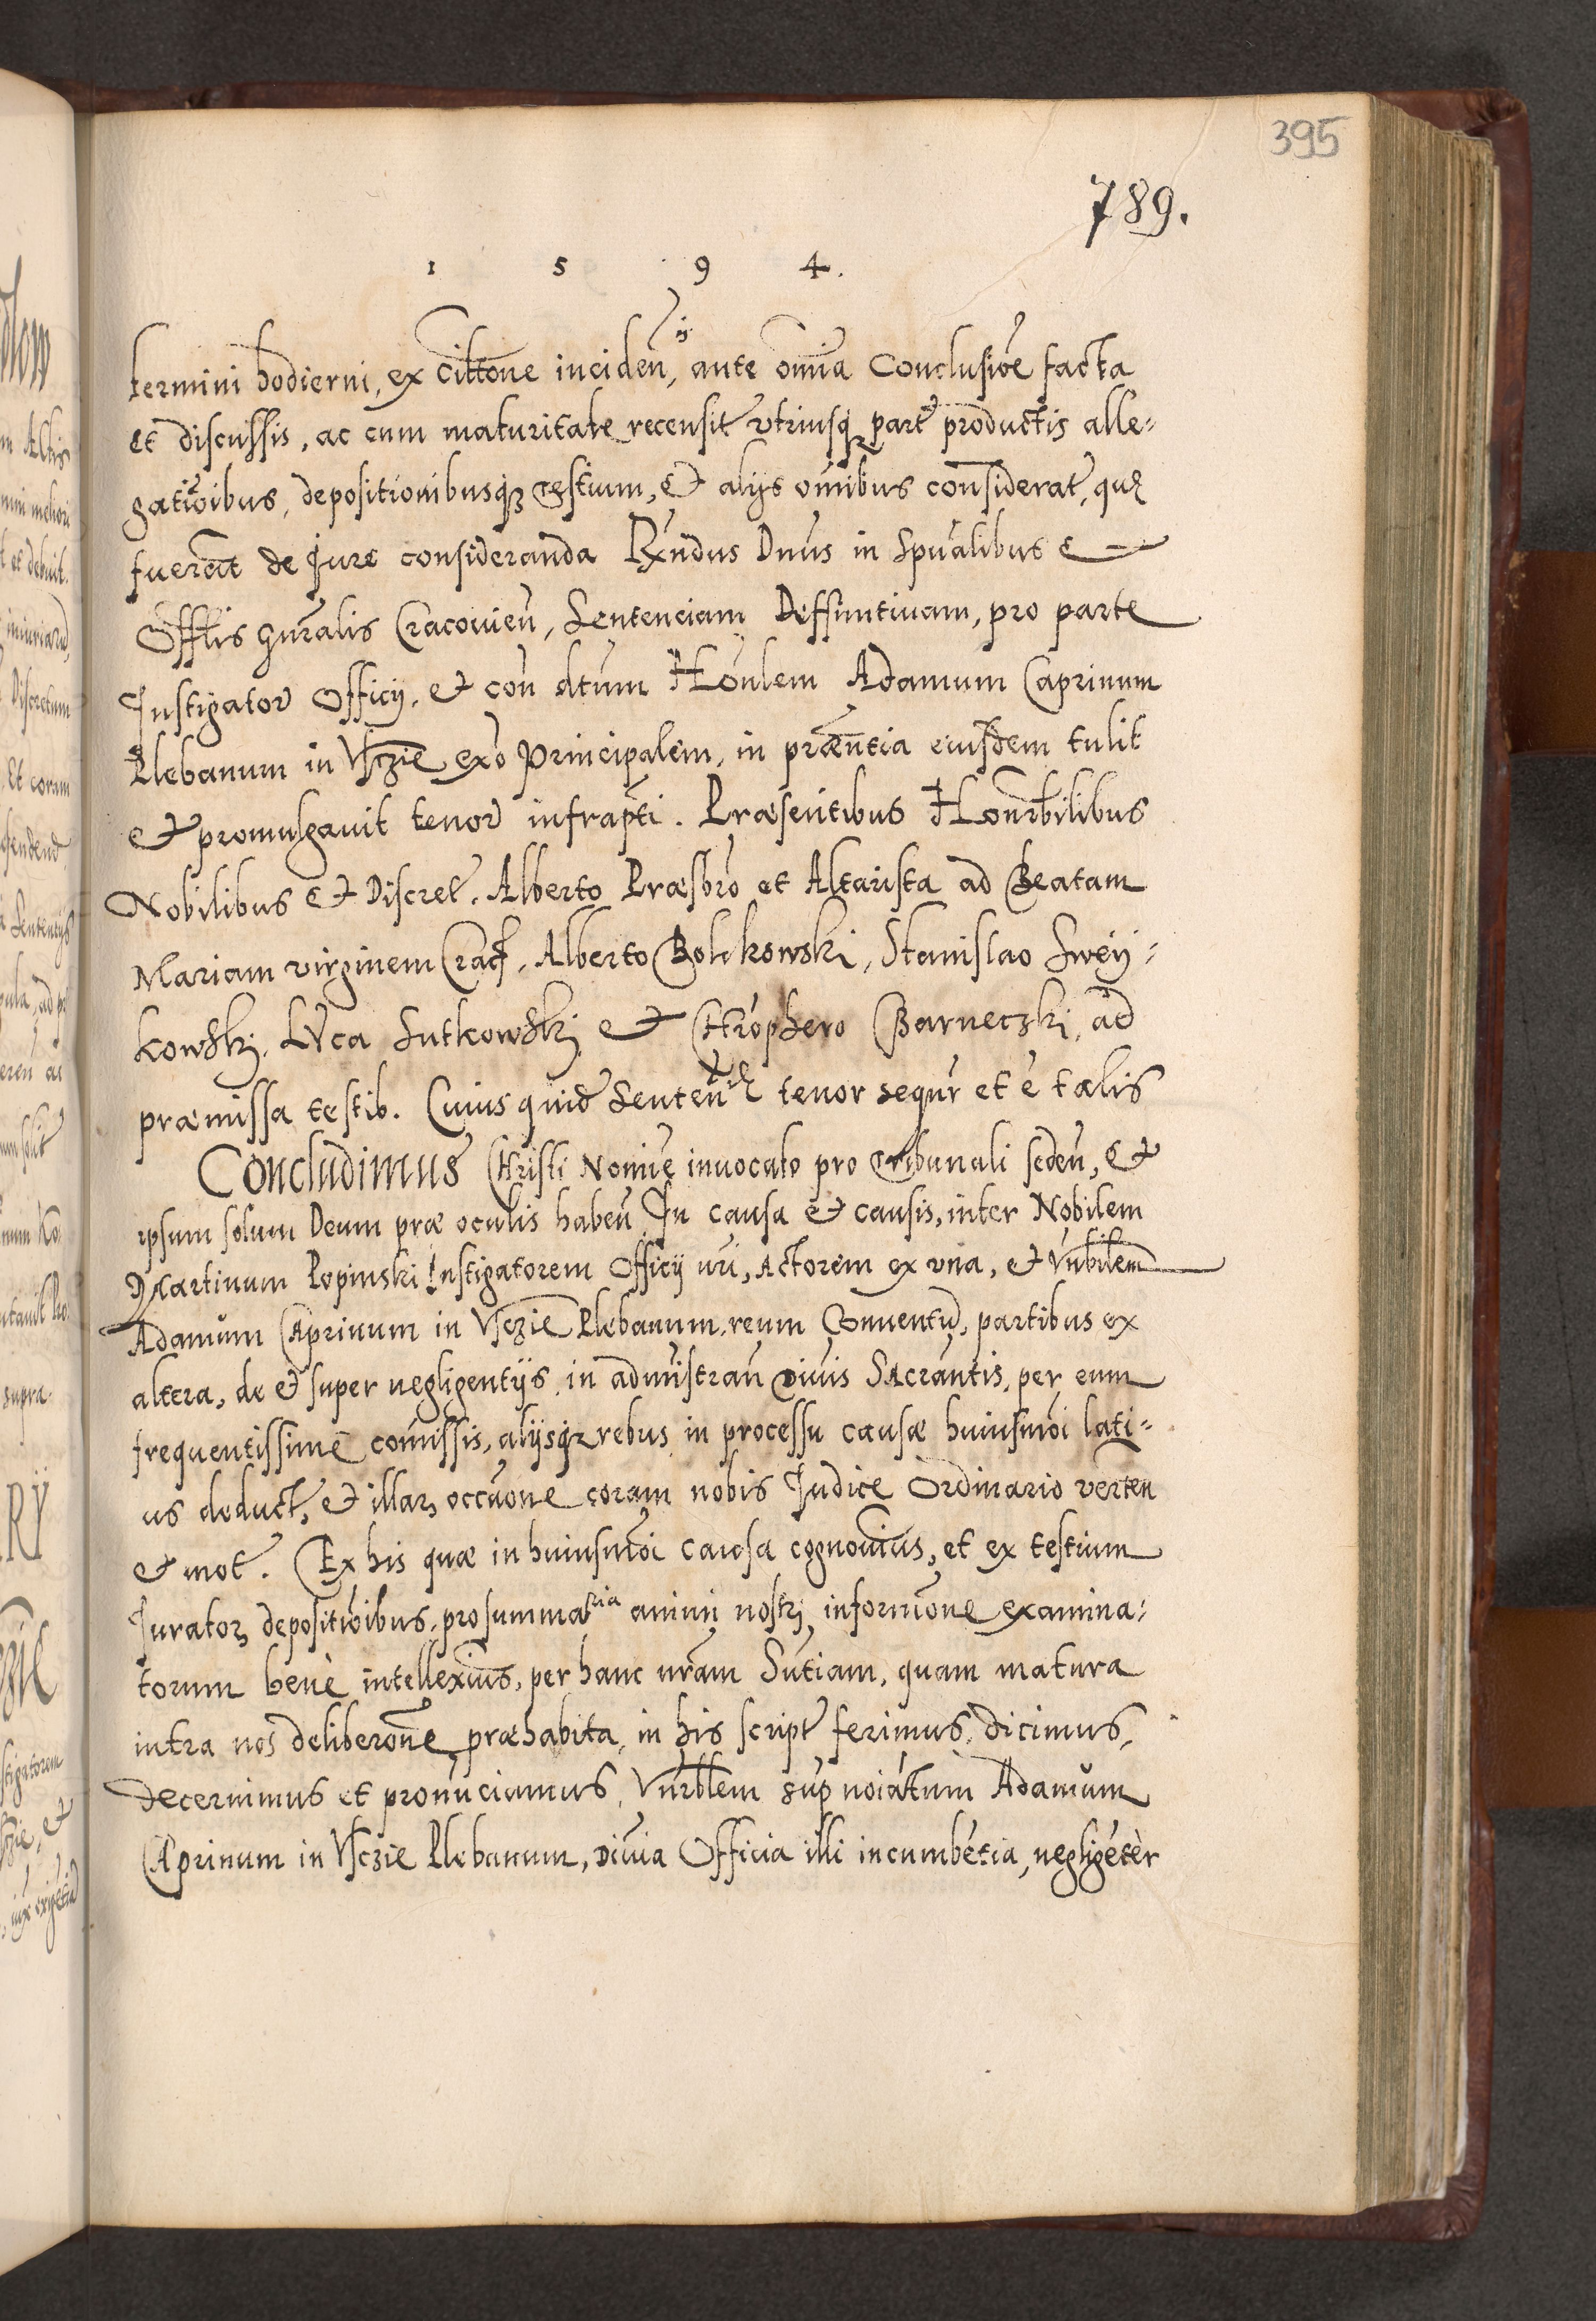 395
789.
1 5 9 4.
termini hodierni, ex Cittone inciden, in ante omnia Conclusiõe facta
et discussis, ac cum maturitate recensit utriusq; part productis alle-
gatiõibus, depositionibusq; testium, et alijs omnibus considerat, quę
fuerãt de Jure consideranda Rxndus Dnus in Spũalibus &
Offlis gnralis Cracovien, Sentenciam Deffinitivam, pro parte
Instigator Officij, et con dtum Honlem Adamum Caprinum
Plebanum in Usczie exo Principalem, in præntia eiusdem tulit
et promulgavit tenor infrapti. Præsentibus Honrbilibus
Nobilibus et Discret. Alberto Præsbro et Altarista ad Beatam
Mariam virginem Crac, Alberto Bolikowski, Stanislao Swey-
kowski, Luca Sutkowski et Chrophero Barneczki, ad
præmissa testib. Cuius quid Sententię tenor sequr et ẽ talis
Concludimus Christi Nomĩe invocato pro tribunali seden, et
ipsum solum Deum præ oculis haben In causa et causis, inter Nobilem
Martinum Popinski Instigatorem Officij nri, Actorem ex una, et Vnbilem
Adamum Caprinum in Usczie Plebanum, reum Conventũ, partibus ex
altera, de et super negligentijs in admistran Divis Sacrantis, per eum
frequentissimè comissis, alijsq; rebus in processu causæ huiusmõi lati-
us deduct, et illar, occãone coram nobis Judice Ordinario verten
et mot. Ex his quæ in huiusmõi causa cognovimus, et ex testium
Jurator, depositiõibus, pro summaria animi nostri informone examina-
torum benè intelleximus, per hanc nram Sntiam, quam matura
intra nos deliberone præhabita, in his script ferimus, dicimus,
decernimus et pronũciamus, Vnrblem sup noiatum Adamum
Caprinum in Usczie Plebanum, Divia Officia illi incumbẽtia, negligẽtèr